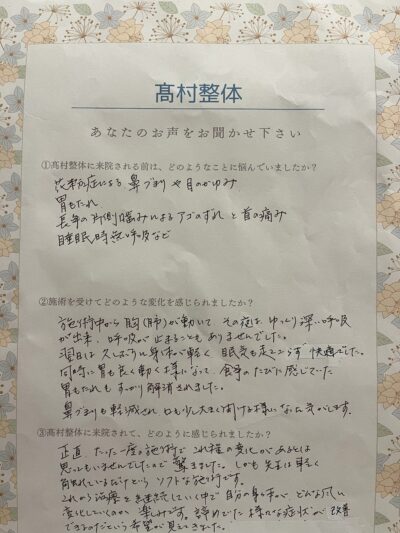 髙村整体
あなたのお声をお聞かせ下さい
①髙村整体に来院される前は、どのようなことに悩んでいましたか？
花粉症による鼻づまりや目のかゆみ
胃もたれ
長年の片側噛みによるアゴのずれと首の痛み
睡眠時無呼吸など
②施術を受けてどのような変化を感じられましたか？
施術中から胸(肺)が動いて その夜は ゆっくり深い呼吸
が出来、呼吸が止まることもありませんでした。
翌日は久しぶりに身体が軽く 眠気も走こらず快適でした。
同時に胃も良く動く様になって、食事のたびに感じていた
胃もたれもすっかり解消されました。
鼻づまりも軽減され 口も少し大きく開ける様になった気がします。
③髙村整体に来院されて、どのように感じられましたか？
正直 たった一度の施術で これ程の変化があるとは
思ってもいませんでしたので 驚きました。しかも先生は軽く
触れているだけという ソフトな施術です。
これから治療を継続していく中で 自分の身体が どんな風に
変化していくのか 楽しみです。諦めていた様々な症状が 改善
できるのだという希望が見えてきました。